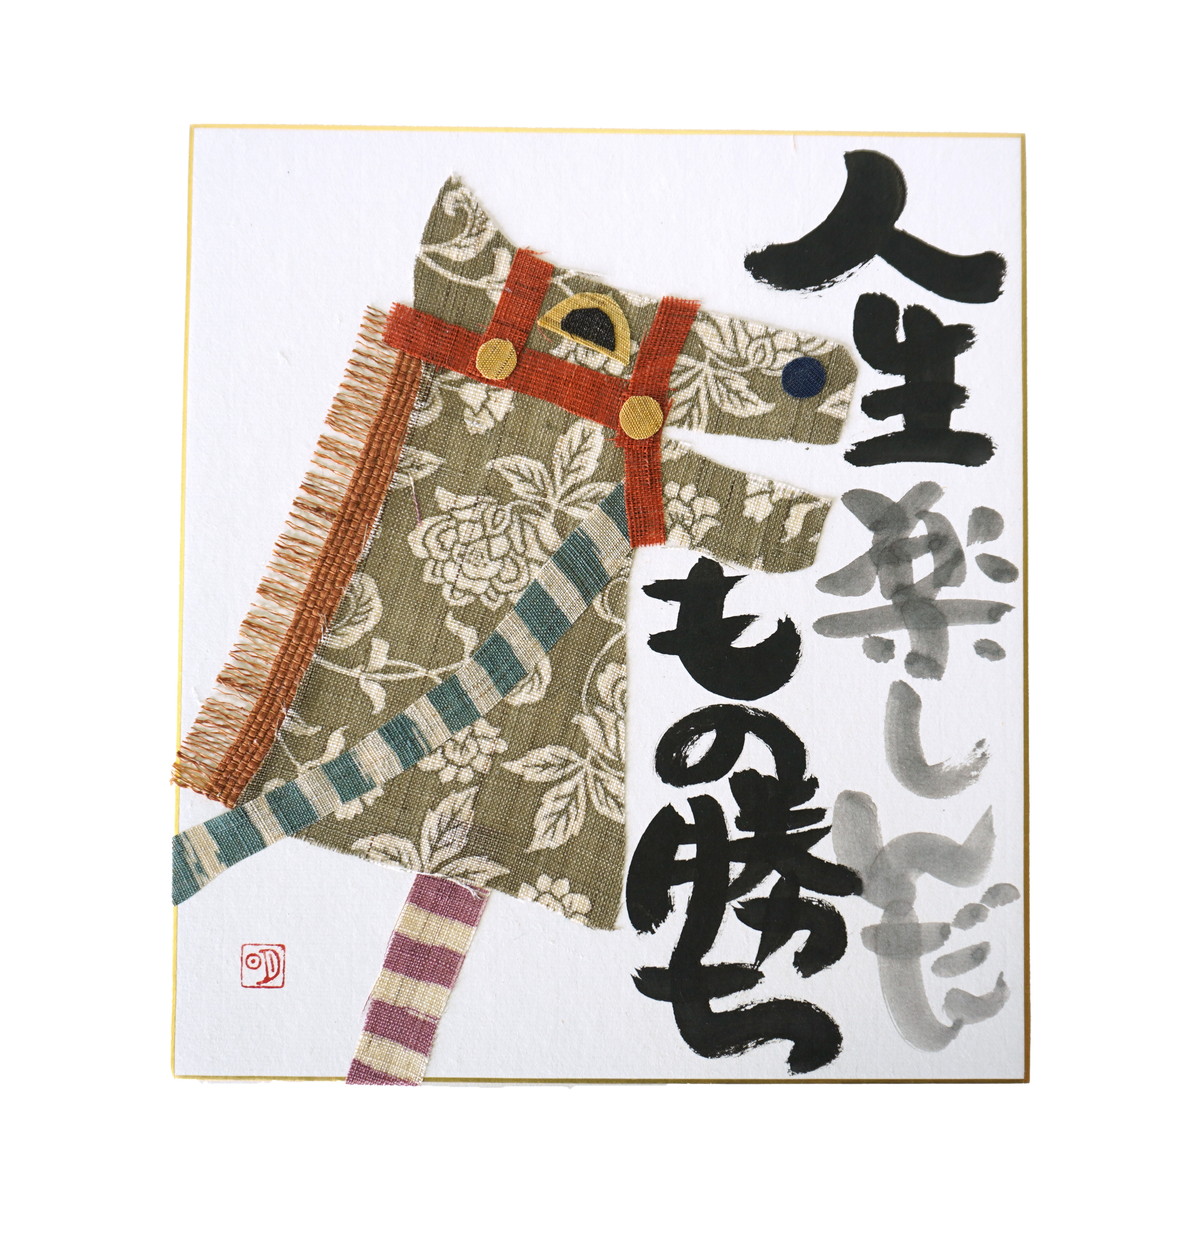 人生楽しんだ
もの勝ち